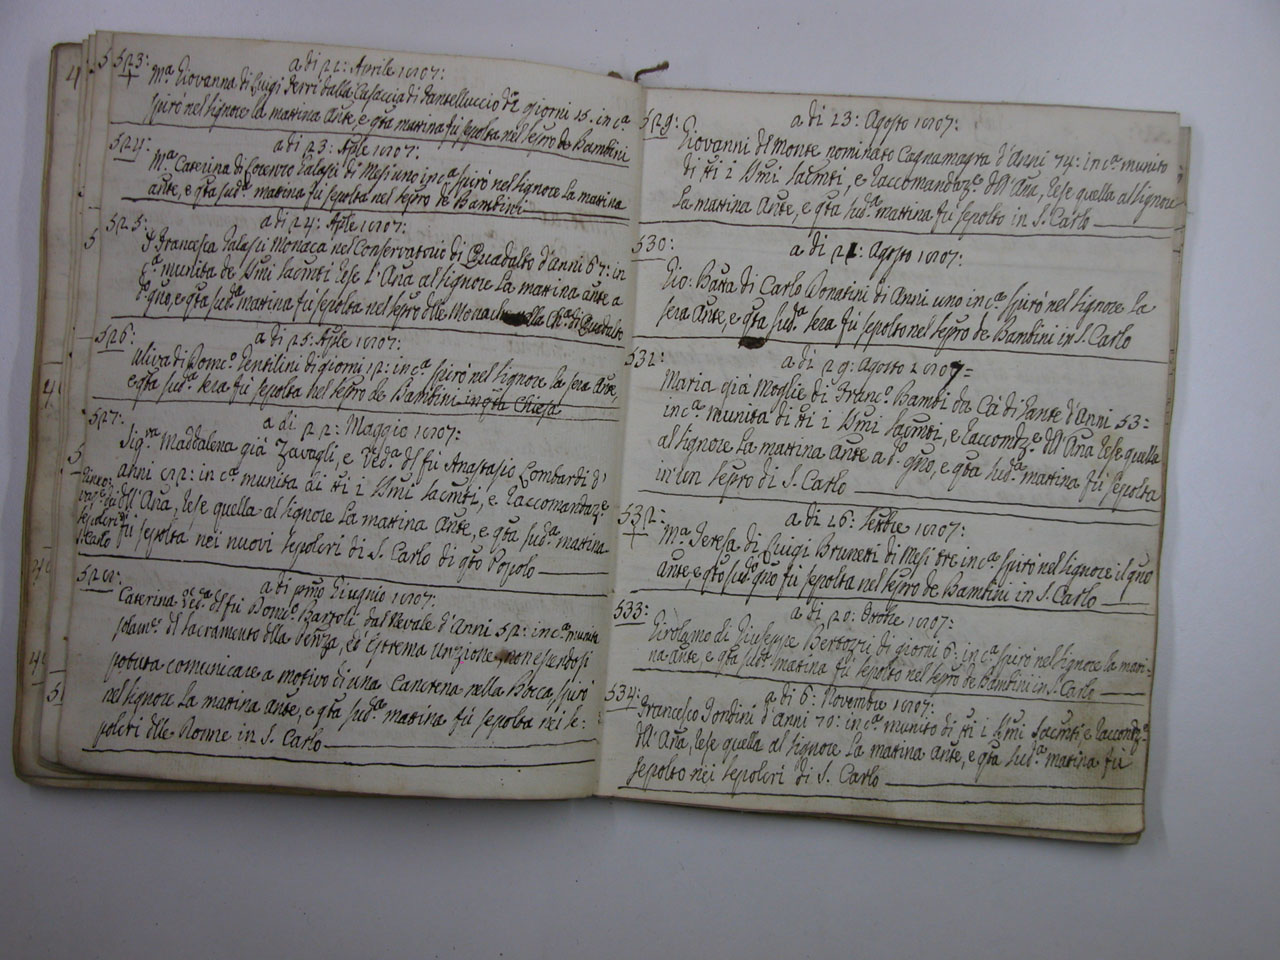 523:
a di 22: Aprile 1807:
M.a Giovanna di Luigi Ferri dalla Casaccia di giorni 15. in c.a
spirò nel Signore la mattina Ante, e q̃ta mattina fù sepolta nel sepro de Bambini
524:
a di 23: Aple 1807:
M.a Caterina di Lorenzo Galassi di Mesi uno in c.a spirò nel Signore la mattina
ante, e q̃ta sud.a mattina fù sepolta nel sepro de Bambini
525:
a di 24: Aple 1807:
S. Francesca Galassi Monaca nel Conservatorio di Guadalto d'anni 67: in
c.a munita de SSmi Sacmti rese l'Ana al Signore la mattina ante a
d.o gno, e q̃ta sud.a mattina fù sepolta nel sepro dlle Monache nella Ch.a di Guadalto
526:
a di 25: Aple 1807:
Uliva di Dome.o Gentilini di giorni 12: in c.a spirò nel Signore la sera Ante,
e q̃ta sud.a sera fù sepolta nel sepro de Bambini in q̃ta Chiesa
527:
a di 22: Maggio 1807:
Sig.ra Maddalena già Zavagli, e Ved.a dl fù Anastasio Lombardi d'
anni 82: in c.a munita di tti i SSmi Sacmti, e raccomandaz.e
dll' Ana, rese quella al Signore la mattina Ante, e q̃ta sud.a mattina
fù sepolta nei nuovi sepolcri di S. Carlo di q̃to Popolo
528:
a di pmo Giugnio 1807:
Caterina Ved.a dl fù Dom.o Bartoli dal Nevale d'Anni 52: in c.a munita
solam.e dl sacramento dlla Penza, ed Estrema Unzione, non essendosi
potuta comunicare a motivo di una Cancrena nella Bocca spirò
nel Signore la mattina ante, e q̃ta sud.a mattina fù sepolta nei se-
polcri dlle Donne in S. Carlo
529:
a di 23: Agosto 1807:
Giovanni dl Monte nominato Cagnamagra d'Anni 74: in c.a munito
di tti i SSmi Sacmti, e raccomandaz.e dll' Ana, rese quella al Signore
la mattina Ante, e q̃ta sud.a mattina fù sepolto in S. Carlo
530:
a di 21: Agosto 1807:
Gio: Batta di Carlo Donatini di Anni uno in c.a spirò nel Signore la
sera Ante, e q̃ta sud.a sera fù sepolto nel sepro de Bambini in S. Carlo
531:
a di 29: Agosto 1807=
Maria già Moglie di Franc.o Bambi da Cà di Zante d'Anni 53:
in c.a munita di tti i SSmi Sacmti, e raccomdz.e dll' Ana rese quella
al Signore la mattina Ante a d.o gno, e q̃ta sud.a mattina fù sepolta
in un sepro di S. Carlo
532:
a di 26: Settbre 1807:
M.a Teresa di Luigi Brunetti di Mesi tre in c.a spirò nel Signore il gno
Ante, e q̃to sud.o gno fù sepolta nel sepro de Bambini in S. Carlo
533:
a di 20: Ottbre 1807:
Girolamo di Giuseppe Bertozzi di giorni 6: in c.a spirò nel Signore la matti-
na ante, e q̃ta sud.a mattina fù sepolto nel sepro de Bambini in S. Carlo
534:
a di 6: Novembre 1807:
Francesco Tondini d'Anni 70: in c.a munito di tti i SSmi Sacmti e raccomdz.e
dll' Ana, rese quella al Signore la mattina Ante, e q̃ta sud.a mattina fù
sepolto nei sepolcri di S. Carlo